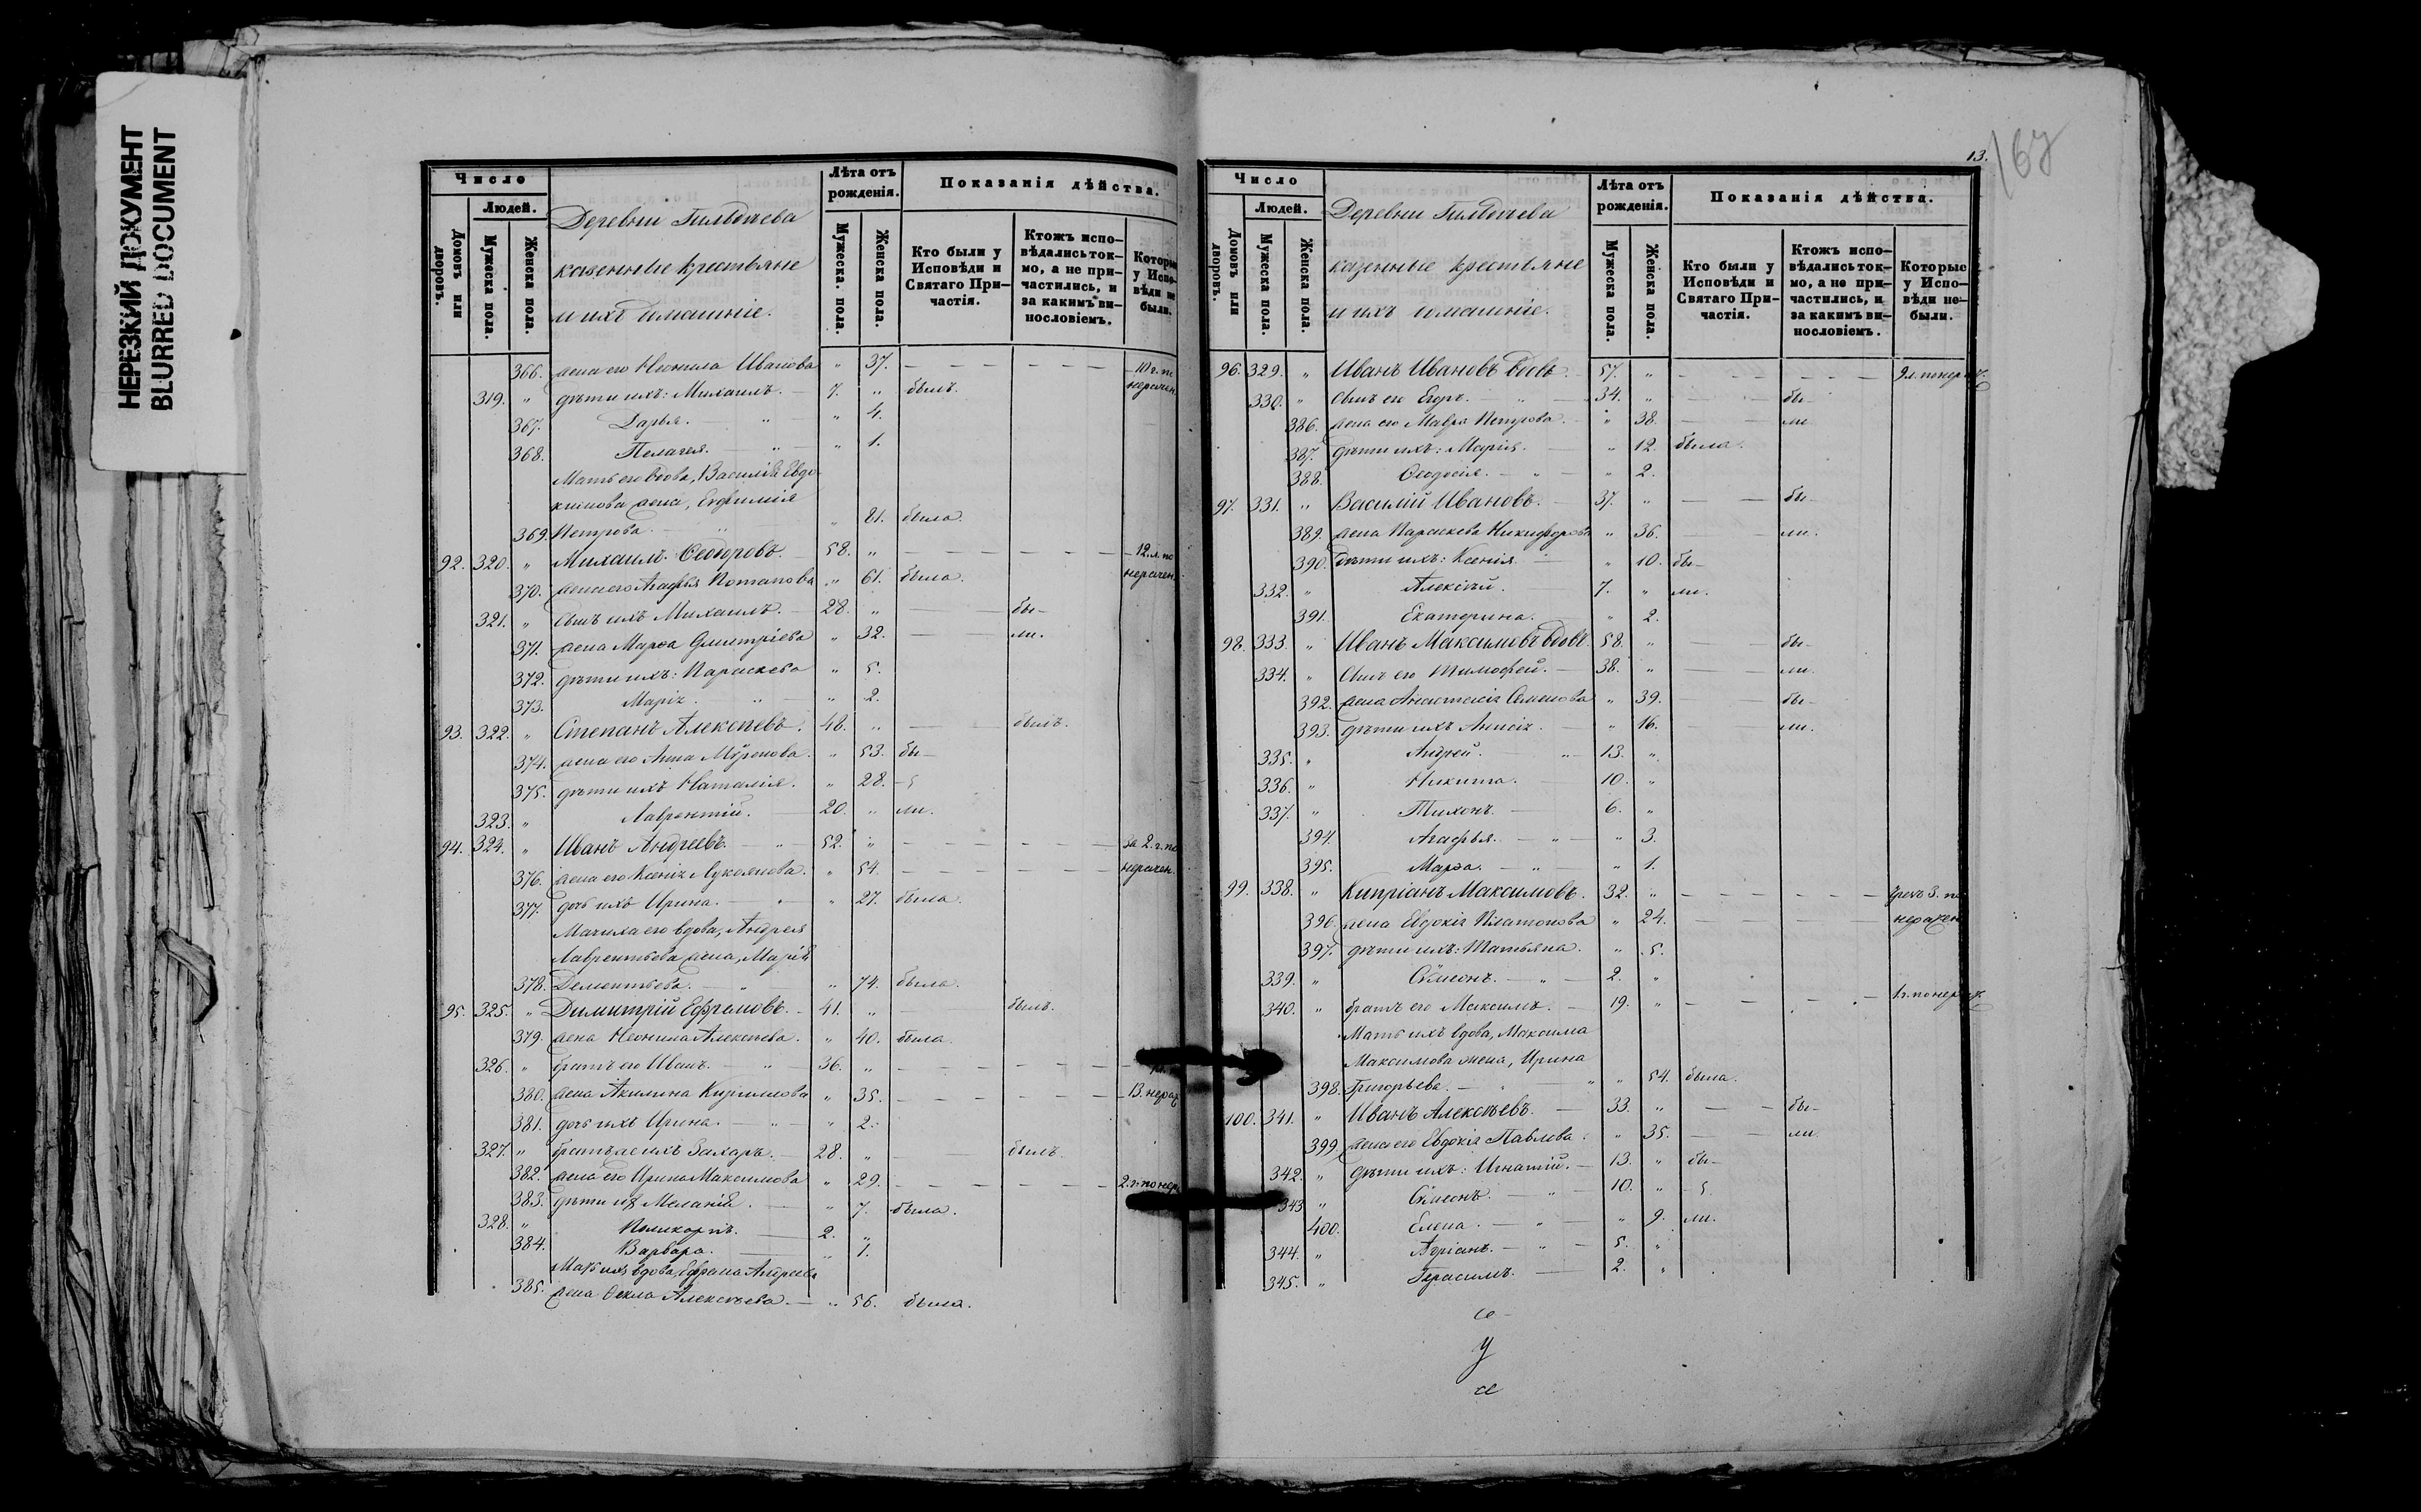 НЕРЕЗКИЙ ДОКУМЕНТ
BLURRED DOCUMENT
Число
Людей.
Домовъ или дворовъ.
Мужеска пола.
Женска пола.
Деревни
казенные крестьяне
и ихъ домашніе.
Лѣта отъ рожденія.
Мужеска. пола.
Женска пола.
Показанія дѣйства.
Кто были у Исповѣди и Святаго При-частія.
Ктожъ испо-вѣдались ток-мо, а не при-частились, и за какимъ ви-нословіемъ.
Которые у Испо-вѣди не были.
366. жена его Неонила Иванова " 37. 10 г. по
319. " дѣти ихъ: Михаилъ. 7. " былъ. нерачен.
367. Дарья. " 4.
368. Пелагея. " 1.
Мать его вдова, Василія Евдо
кимова жена, Евфимія
369. Петрова. " 81. была.
92. 320. " Михаилъ Ѳеодоровъ. 58. " 12. л. по
370. жена его Агафья Потапова " 61. была. нерачен.
321. " сынъ ихъ Михаилъ. 28. " бы-
371. жена Марѳа Дмитріева " 32. ли.
372. дѣти ихъ: Параскева " 5.
373. Марія. " 2.
93. 322. " Степанъ Алексѣевъ. 48. " былъ.
374. жена его Анна Миронова. " 53. бы-
375. дѣти ихъ Наталія. " 28.
323. " Лаврентій. 20. " ли.
94. 324. " Иванъ Андреевъ. 52. " За 2. г. по
376. жена его Ксенія Лукоянова. " 54. нерачен.
377. дочь ихъ Ирина. " 27. была.
Мачиха его вдова, Андрея
Лаврентьева жена, Марія
378. Дементьева. " 74. была.
95. 325. " Димитрій Ефремовъ. 41. " былъ.
379. жена Неонила Алексѣева. " 40. была.
326. " братъ его Иванъ. 36. "
380. жена Акилина Кириллова " 35. 13. нерач
381. дочь ихъ Ирина. " 2.
327. " братъ же ихъ Захаръ. 28. " былъ.
382. жена его Ирина Максимова " 29. 2. г. по нер.
383. дѣти их Меланія. " 7. была.
328. " Поликарпъ. 2. "
384. Варвара. " 1.
Мать ихъ вдова, Ефрема Андреева
385. жена Ѳекла Алексѣева. " 56. была.
13.
167
Число
Людей.
Домовъ или дворовъ.
Мужеска пола.
Женска пола.
Деревни
казенные крестьяне
и ихъ домашніе.
Лѣта отъ рожденія.
Мужеска пола.
Женска пола.
Показанія дѣйства.
Кто были у Исповѣди и Святаго При-частія.
Ктожъ испо-вѣдались ток-мо, а не при-частились, и за какимъ ви-нословіемъ.
Которые у Испо-вѣди не-были.
96. 329. " Иванъ Ивановъ вдовъ. 57. " 9 л. по нерач.
330. " сынъ его Егоръ. 34. " бы-
386. жена его Мавра Петрова. " 38. ли
387. дѣти ихъ: Марія. " 12. была.
388. Ѳеодосія. " 2.
97. 331. " Василій Ивановъ. 37. " бы-
389. жена Параскева Никифорова " 36. ли.
390. дѣти ихъ: Ксенія. " 10. бы-
332. " Алексѣй. 7. " ли.
391. Екатерина. " 2.
98. 333. " Иванъ Максимовъ вдовъ. 58. " бы-
334. " Сынъ его Тимофей. 38. " ли.
392. жена Анастасія Семенова " 39. бы-
393. дѣти ихъ Анисія. " 16. ли.
335. " Андрей. 13. "
336. " Никита. 10. "
337. " Тихонъ. 6. "
394. Агафья. " 3.
395. Марѳа. " 1.
99. 338. " Кипріанъ Максимовъ. 32. " 3. по
396. жена Евдокія Платонова " 24. нерачен
397. дѣти ихъ: Татьяна. " 5.
339. " Сѵмеонъ. 2. "
340. " братъ его Максимъ. 19. " 1 г. по нерач.
Мать ихъ вдова, Максима
Максимова жена, Ирина
398. Григорьева. " 54. была.
100. 341. " Иванъ Алексѣевъ. 33. " бы-
399. жена его Евдокія Павлова. " 35. ли
342. " дѣти ихъ: Игнатій. 13. " бы-
343 " Сѵмеонъ. 10. "
400. Елена. " 9. ли.
344. " Адріанъ. 5. "
345. " Герасимъ. 2. "